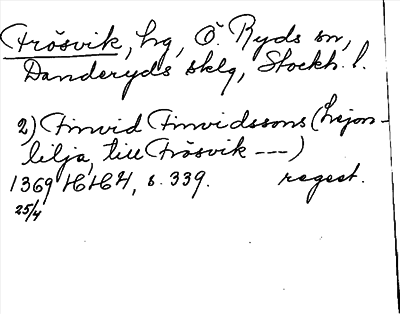 Frösvik, hg, Ö. Ryds sn,
Danderyds sklg, Stockh. l.
2) Finvid Finvidssons (hsjon-
lilja, till Frösvik ---)
1369 HH4, s. 339. regest.
25/4